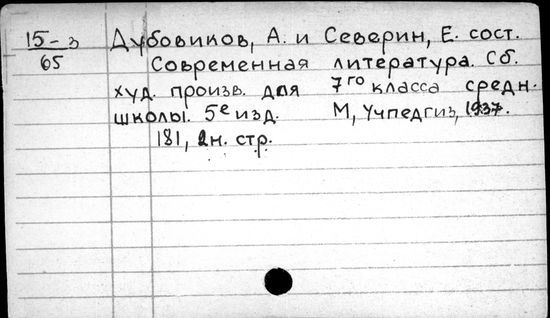 15-з Дубовиков, А. и Северин, Е. сост.
65 Современная литература. Сб.
худ. произв. для 7го класса средн.
школы. 5е изд. М, Учпедгиз, 1937.
181, 2н. стр.